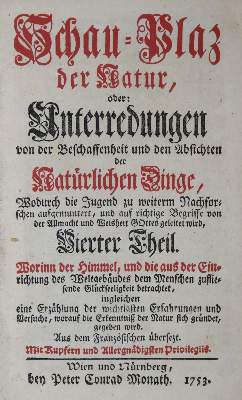 Schau-Plaz
der Natur,
oder:
Unterredungen
von der Beschaffenheit und den Absichten
der
Natürlichen Dinge,
Wodurch die Jugend zu weiterm Nachfor-
schen aufgemuntert, und auf richtige Begriffe von
der Allmacht und Weisheit GOttes geleitet wird,
Vierter Theil.
Worinn der Himmel, und die aus der Ein-
richtung des Weltgebäudes dem Menschen zuflies-
sende Glückseligkeit betrachtet,
ingleichen
eine Erzählung der wichtigsten Erfahrungen und
Versuche, worauf die Erkenntniß der Natur sich gründet,
gegeben wird.
Aus dem Französischen übersezt.
Mit Kupfern und Allergnädigsten Privilegiis.
Wien und Nürnberg,
bey Peter Conrad Monath. 1753.